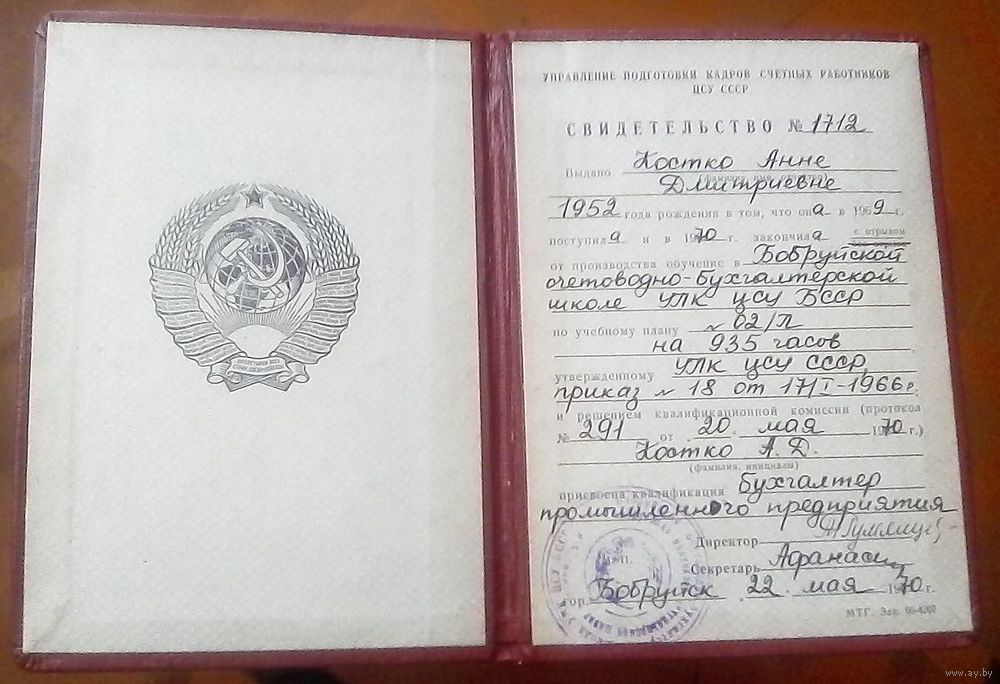 УПРАВЛЕНИЕ ПОДГОТОВКИ КАДРОВ СЧЕТНЫХ РАБОТНИКОВ
ЦСУ СССР
СВИДЕТЕЛЬСТВО № 1712
Выдано Костко Анне
(фамилия, имя, отчество)
Дмитриевне
1952 года рождения в том, что она в 1969 г.
поступила и в 1970 г. закончила с отрывом
от производства обучение в Бобруйской
счетоводно-бухгалтерской
школе УПК ЦСУ БССР
по учебному плану № 02/П
на 935 часов
утвержденному УПК ЦСУ СССР,
приказ № 18 от 17/I-1966 г.
и решением квалификационной комиссии (протокол
№ 291 от 20 мая 1970 г.)
Костко А. Д.
(фамилия, инициалы)
присвоена квалификация бухгалтер
промышленного предприятия
Директор
М.П.
Секретарь
гор. Бобруйск 22 мая 1970 г.
МТГ. Зак. 06-4207
www.ay.by